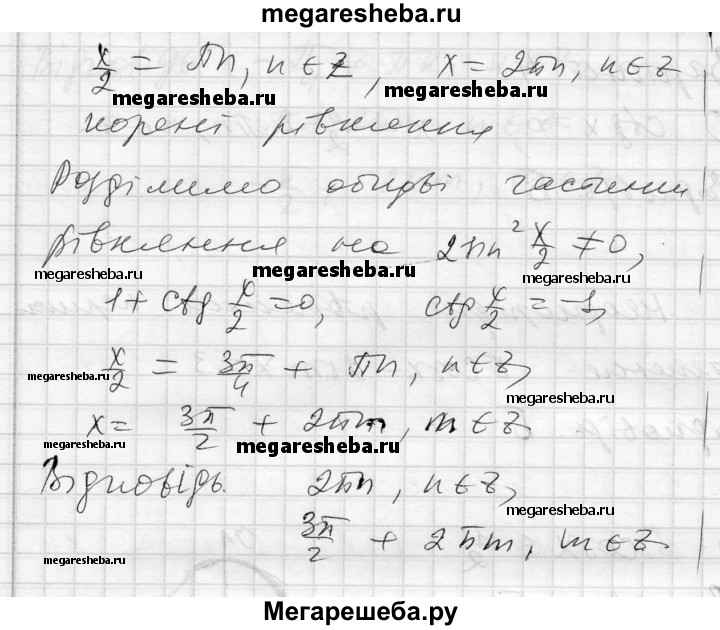 megaresheba.ru
x/2 = πn, n ∈ Z, x = 2πn, n ∈ Z
megaresheba.ru megaresheba.ru
корені рівняння
Розділимо обидві частини
рівняння на 2sin² x/2 ≠ 0,
megaresheba.ru megaresheba.ru megaresheba.ru
1 + ctg x/2 = 0, ctg x/2 = -1,
x/2 = 3π/4 + πn, n ∈ Z,
megaresheba.ru megaresheba.ru
x = 3π/2 + 2πm, m ∈ Z
megaresheba.ru megaresheba.ru
Відповідь. 2πn, n ∈ Z,
megaresheba.ru
3π/2 + 2πm, m ∈ Z
megaresheba.ru megaresheba.ru
Мегарешеба.ру